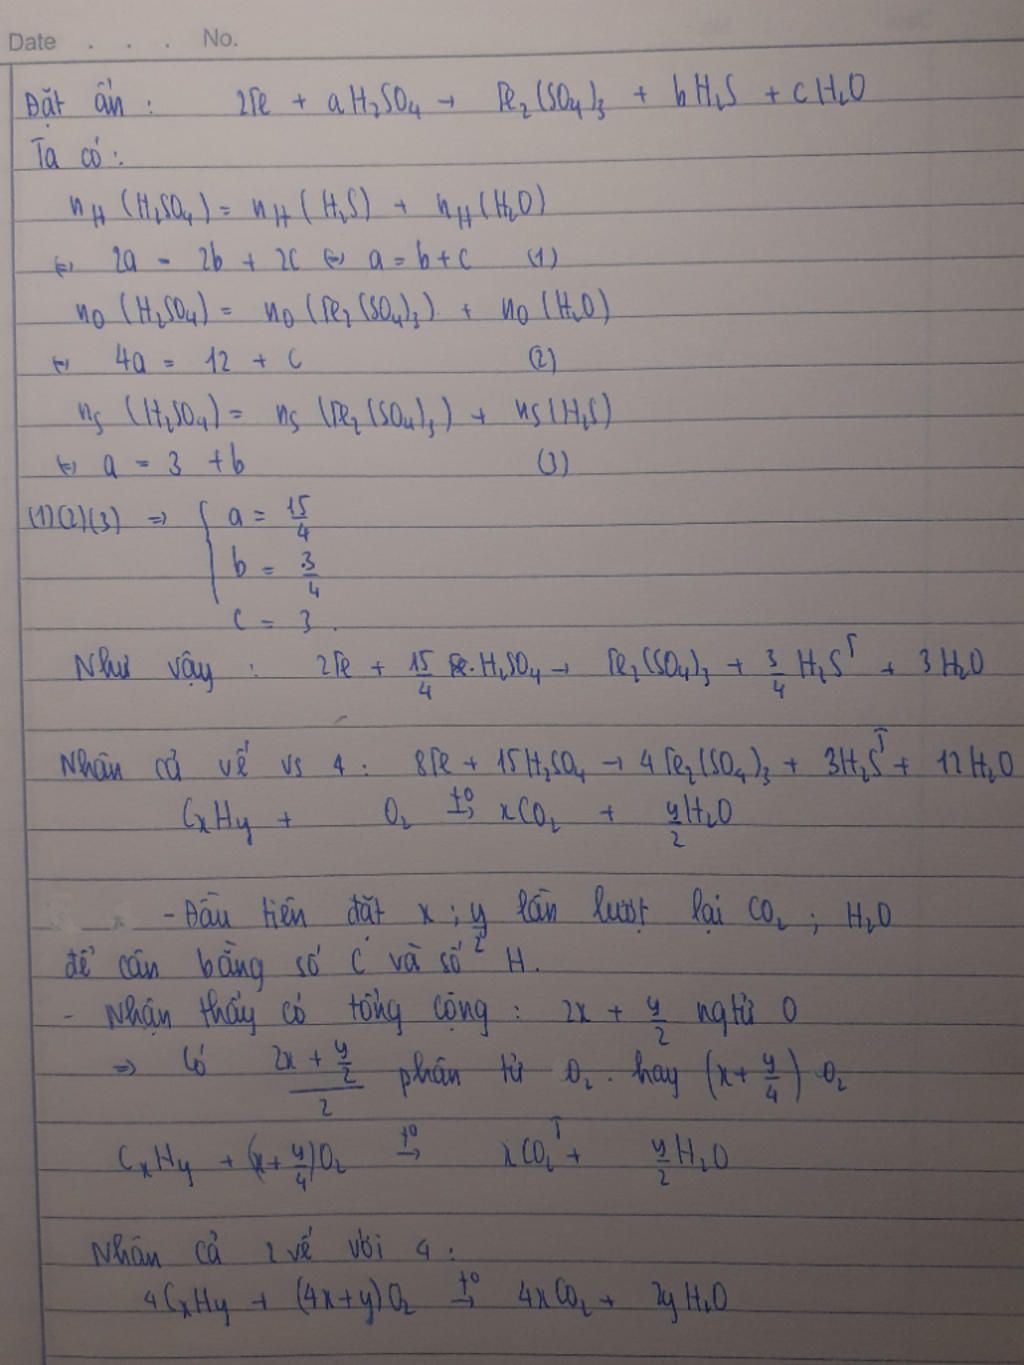 Date . . . No.
Đặt ẩn : 2Fe + aH₂SO₄ → Fe₂(SO₄)₃ + bH₂S + cH₂O
Ta có :
nH (H₂SO₄) = nH (H₂S) + nH (H₂O)
⇔ 2a = 2b + 2c ⇔ a = b+c (1)
nO (H₂SO₄) = nO (Fe₂(SO₄)₃) + nO (H₂O)
⇔ 4a = 12 + c (2)
nS (H₂SO₄) = nS (Fe₂(SO₄)₃) + nS (H₂S)
⇔ a = 3 + b (3)
(1)(2)(3) ⇒ { a = 15/4
b = 3/4
c = 3.
Như vậy : 2Fe + 15/4 H₂SO₄ → Fe₂(SO₄)₃ + 3/4 H₂S↑ + 3H₂O
Nhân cả vế vs 4 : 8Fe + 15H₂SO₄ → 4Fe₂(SO₄)₃ + 3H₂S↑ + 12H₂O
CxHy + O₂ →t⁰ xCO₂ + y/2 H₂O
- Đầu tiên đặt x ; y/2 lần lượt lại CO₂ ; H₂O
để cân bằng số C và số H.
- Nhận thấy có tổng cộng : 2x + y/2 ngtử O
⇒ Có (2x + y/2)/2 phân tử O₂. hay (x + y/4) O₂
CxHy + (x + y/4)O₂ →t⁰ xCO₂↑ + y/2 H₂O
Nhân cả 2 vế với 4 :
4CxHy + (4x+y)O₂ →t⁰ 4xCO₂ + 2yH₂O